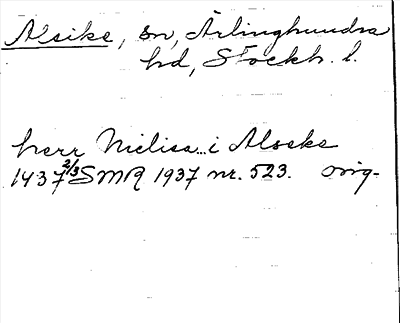 Alsike, sn, Ärlinghundra
hd, Stockh. l.
herr Nielisa.. i Alseke
1437 2/3 SMR 1937 nr. 523. orig-